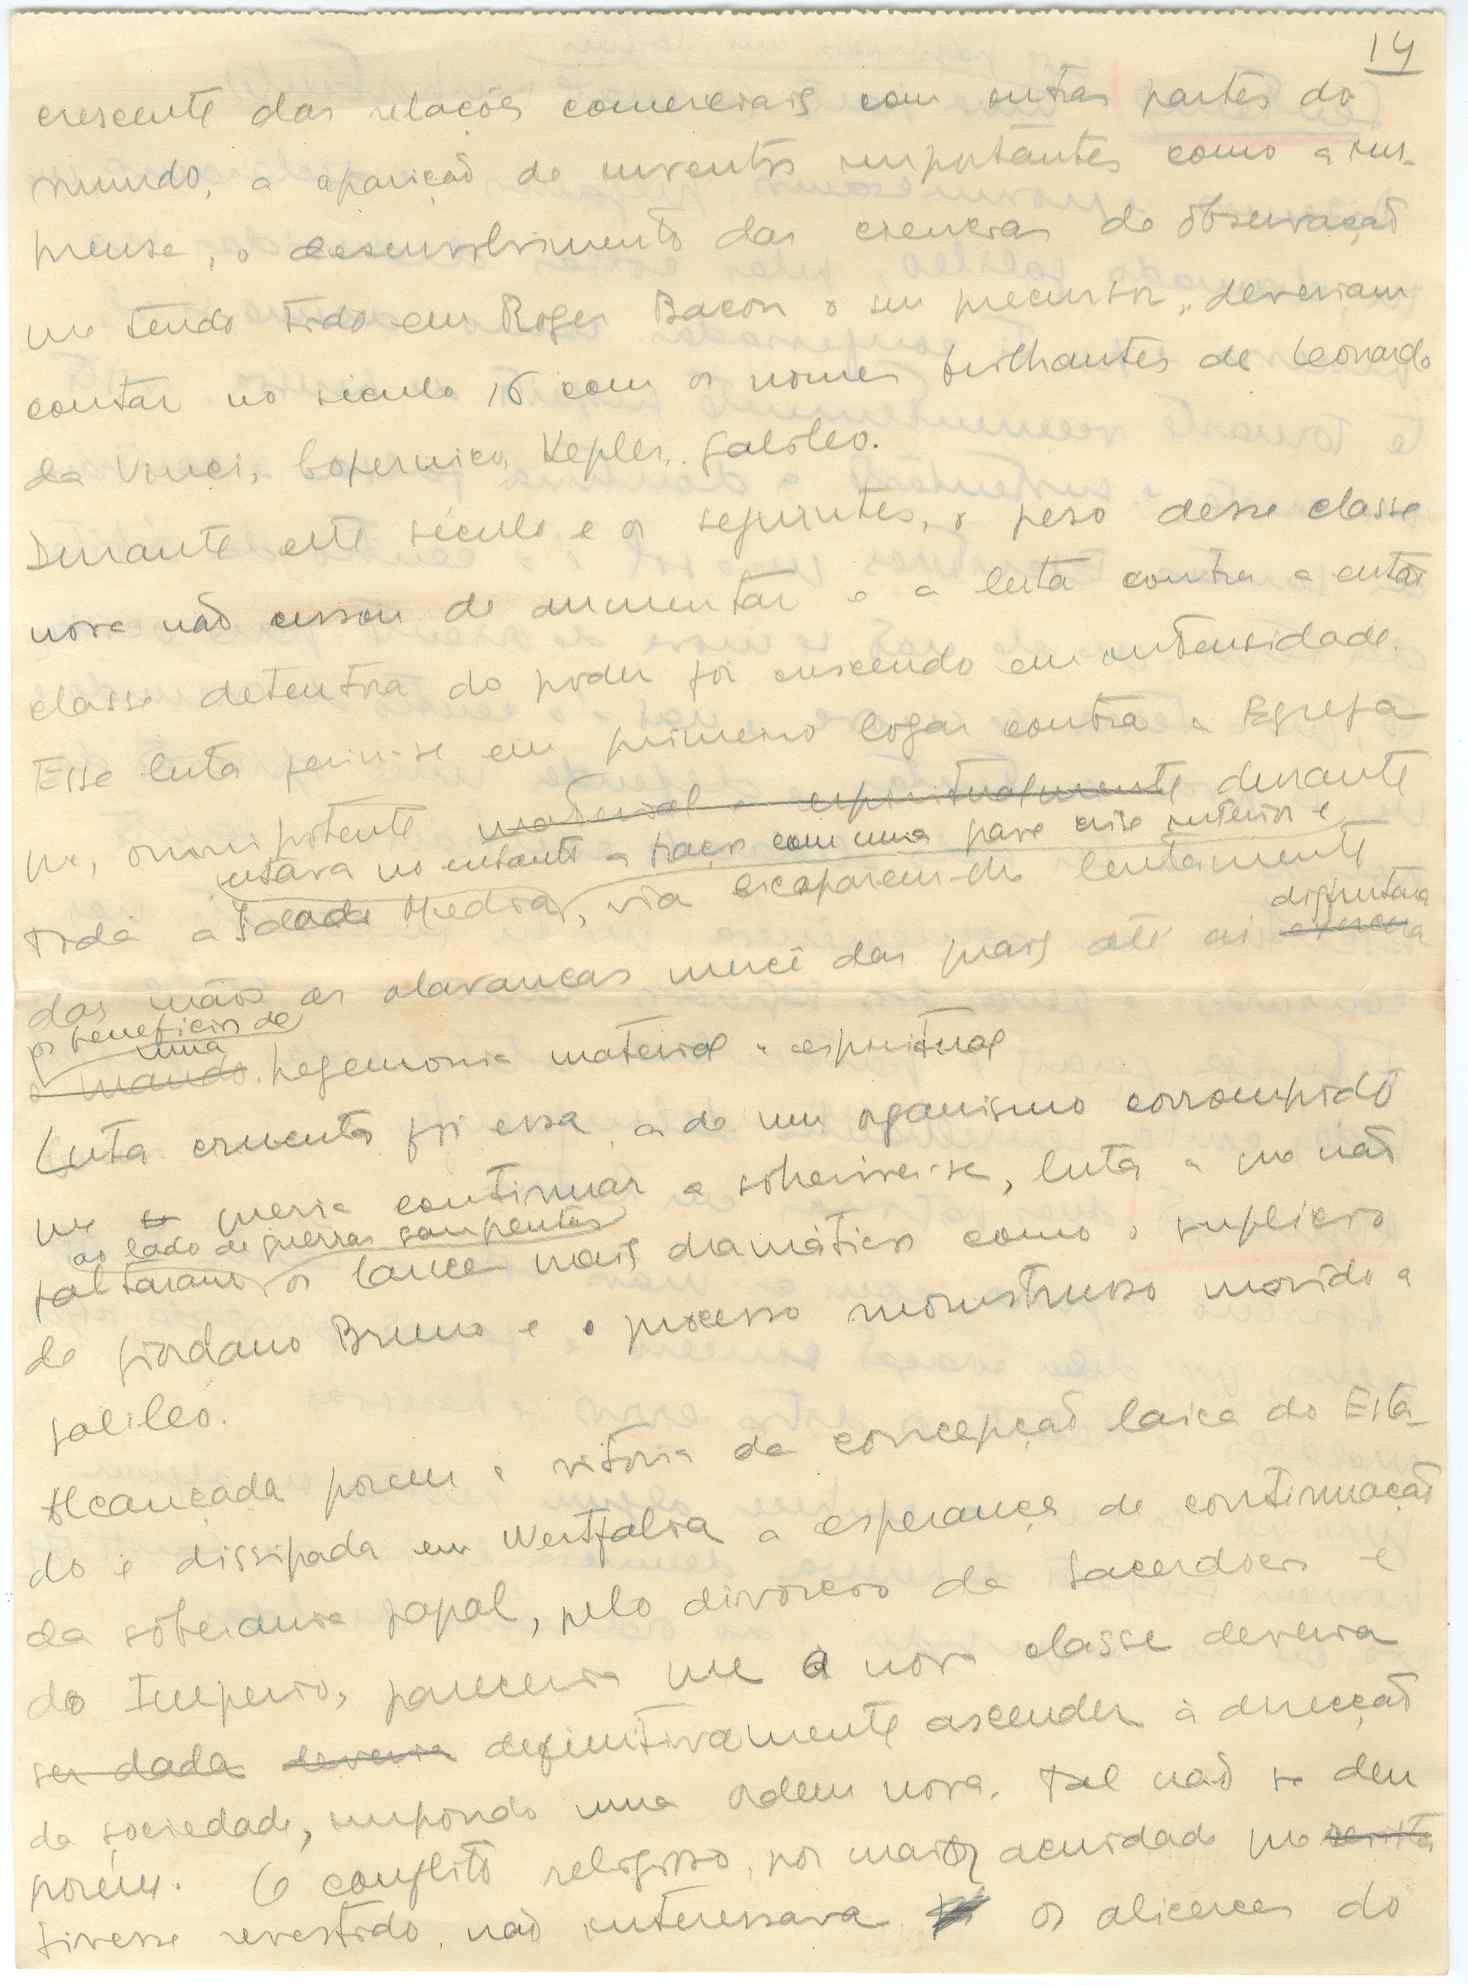 14
crescente das relações comerciais com outras partes do
mundo, a aparição de inventos importantes como a im-
prensa, o desenvolvimento das ciencias de observação
que tendo tido em Roger Bacon o seu precursor, deveriam
contar no século 16 com os nomes brilhantes de Leonardo
da Vinci, Copernico, Kepler, Galileo.
Durante este século e os seguintes, o peso dessa classe
nova não cessou de aumentar e a luta contra a então
classe detentora do poder foi crescendo em intensidade.
Essa luta feriu-se em primeiro logar contra a Egreja
que, omnipotente material e espiritualmente durante
estava no entanto a braços com uma grave crise interior e
toda a Idade Media, via escaparem-se lentamente
disfrutara
das mãos as alavancas mercê das quais até aí exercera
os beneficios de
uma
o mando hegemonia material e espiritual
Luta cruenta foi essa, a de um organismo corrompido
que se queria continuar a sobreviver-se, luta a que não
ao lado de guerras sangrentas
faltaram os lances mais dramáticos como o suplicio
de Giordano Bruno e o processo monstruoso movido a
Galileo.
Alcançada porem a vitoria da concepção laica do Esta-
do e dissipada em Westfalia a esperança de continuação
da soberania papal, pelo divorcio do Sacerdocio e
do Imperio, pareceria que a nova classe deveria
ser dada deveria definitivamente ascender à direcção
da sociedade, impondo uma ordem nova. Tal não se deu
porém. O conflito religioso, por maior acuidade que
tivesse revestido, não interessava os alicerces do